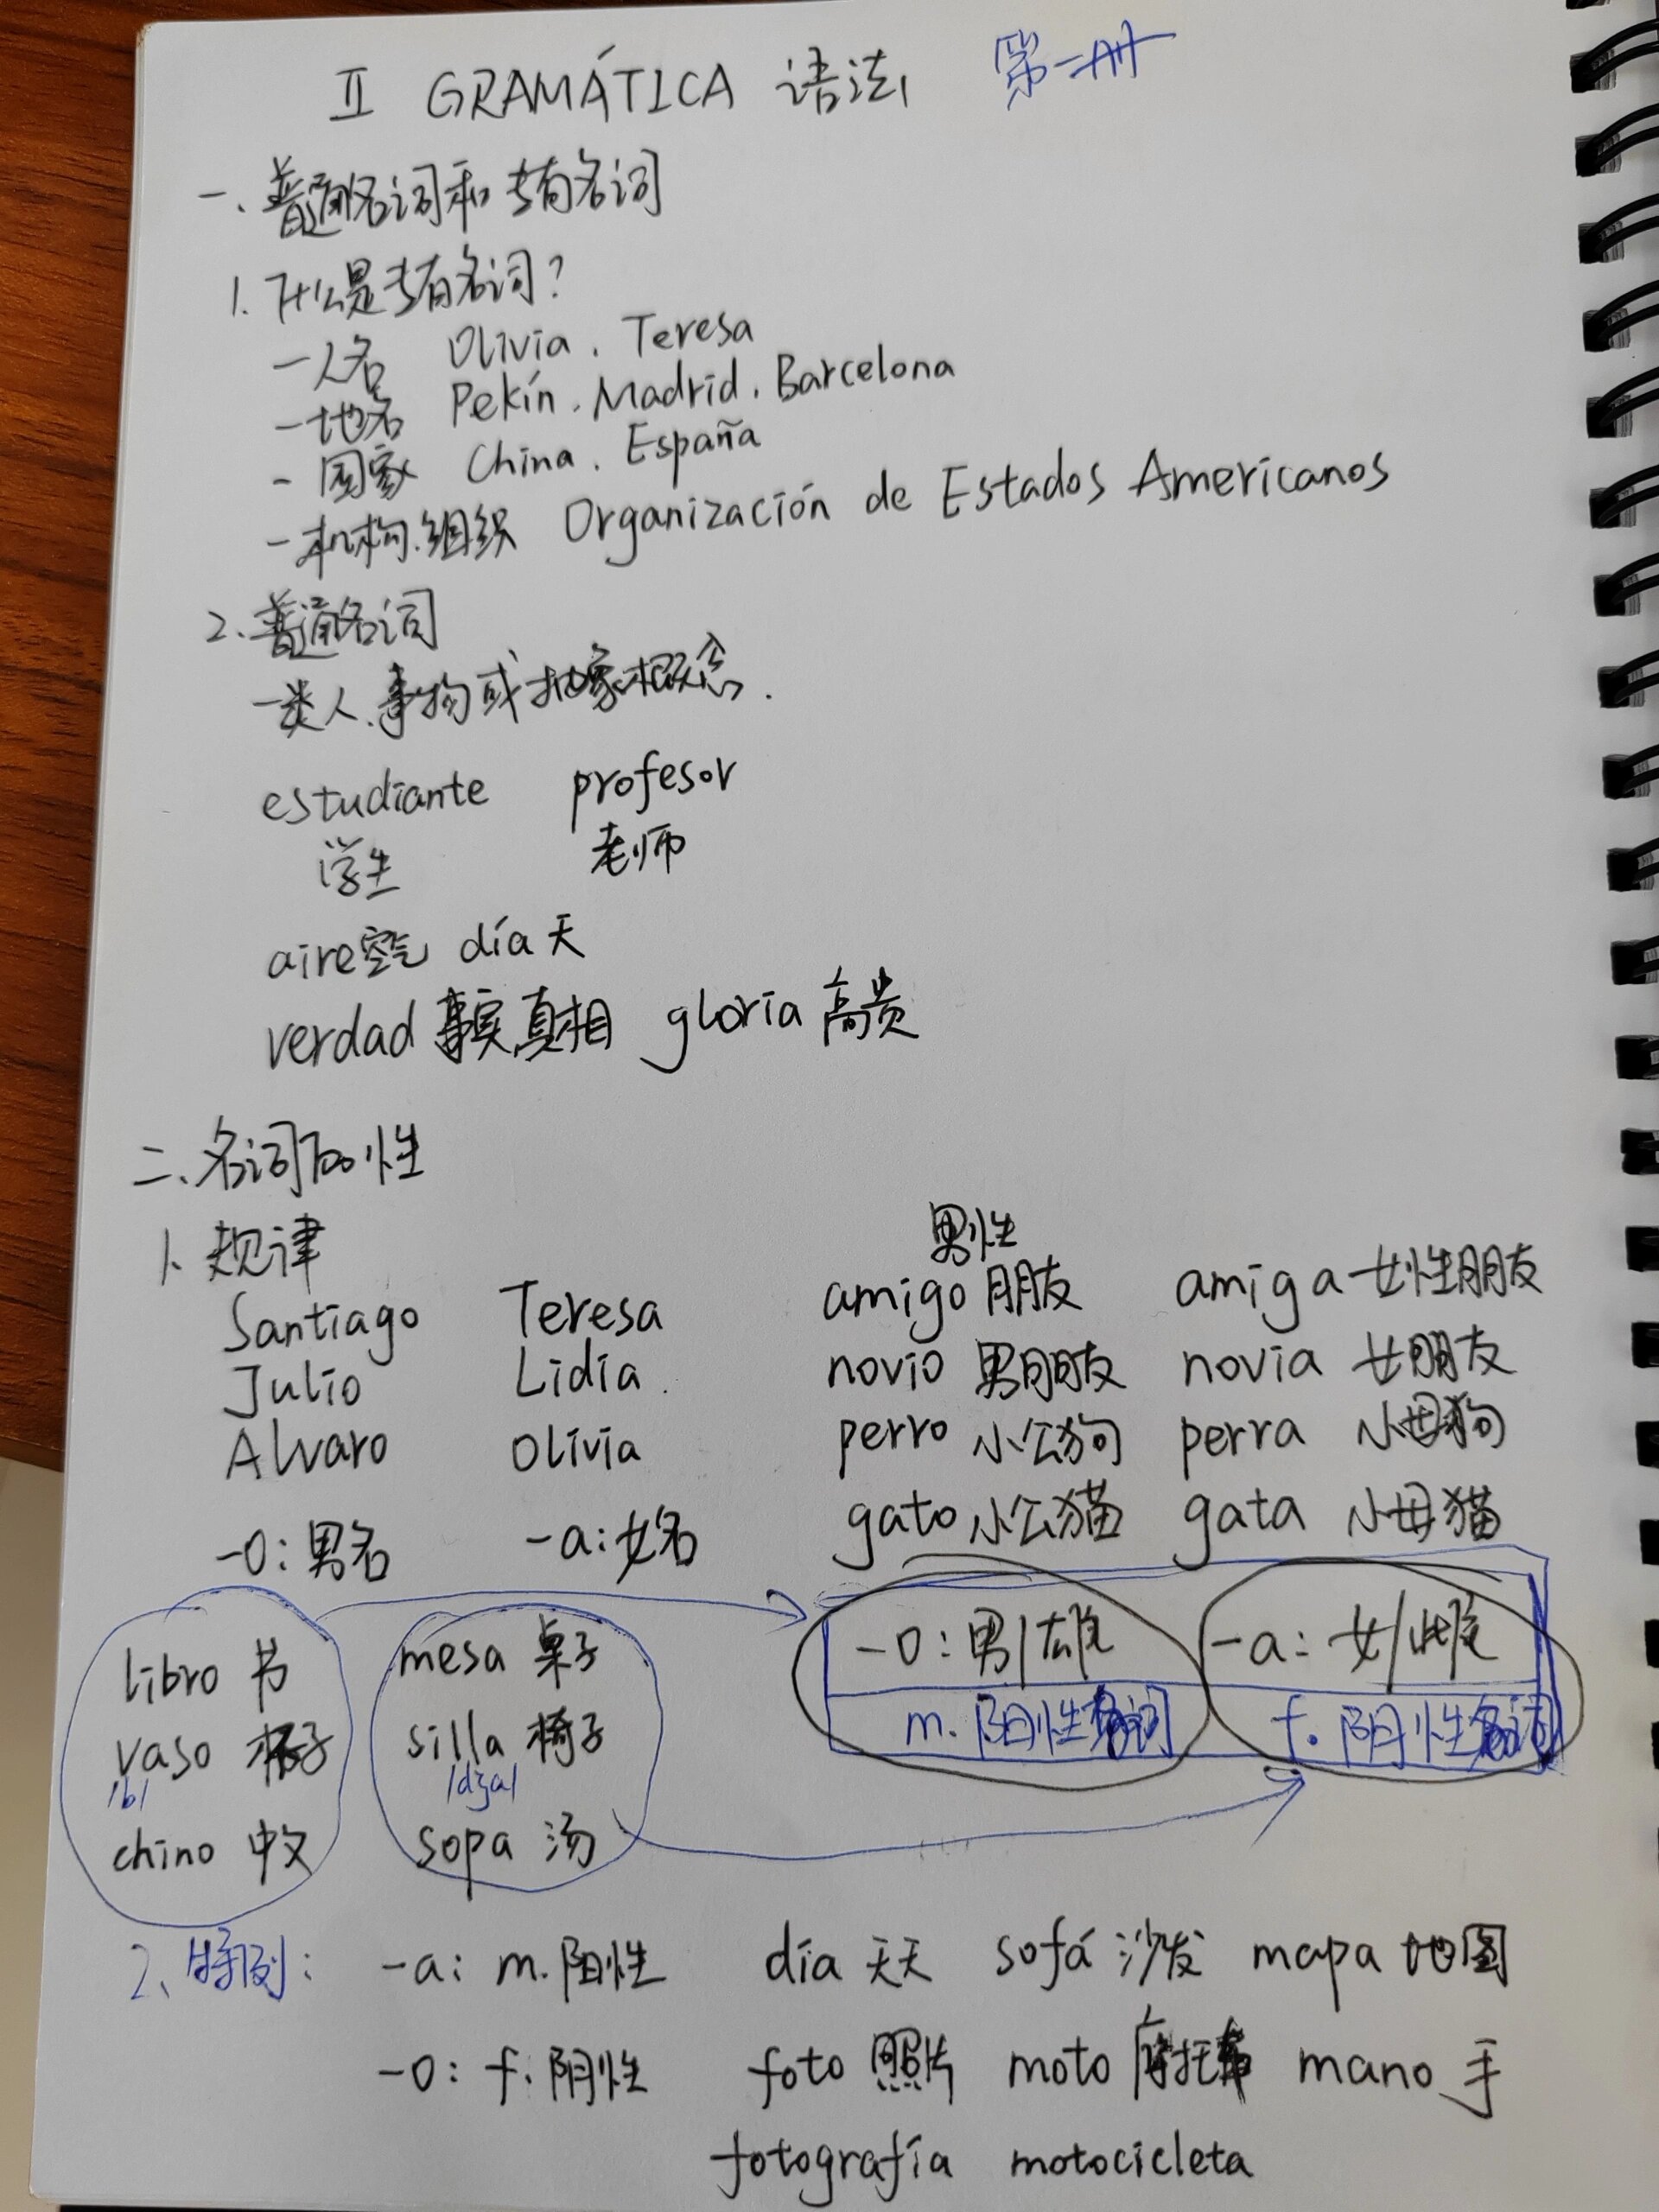 II GRAMÁTICA 语法 第一册
一、普通名词和专有名词
1. 什么是专有名词?
-人名 Olivia, Teresa
-地名 Pekín, Madrid, Barcelona
- 国家 China, España
-机构.组织 Organización de Estados Americanos
2、普通名词
一类人、事物或抽象概念.
estudiante profesor
学生 老师
aire空气 día天
verdad 事实真相 gloria高贵
二、名词的性
1、规律
男性
Santiago Teresa amigo 朋友 amiga 女性朋友
Julio Lidia. novio 男朋友 novia 女朋友
Alvaro Olivia perro 小公狗 perra 小母狗
gato 小公猫 gata 小母猫
-o: 男名 -a: 女名
libro 书 mesa 桌子 -o: 男/雄 -a: 女/雌
vaso 杯子 silla 椅子 m. 阳性名词 f. 阴性名词
/b/ /dʒa/
chino 中文 sopa 汤
2、特例: -a: m. 阳性 día 天天 sofá 沙发 mapa 地图
-o: f. 阴性 foto 照片 moto 摩托车 mano 手
fotografía motocicleta